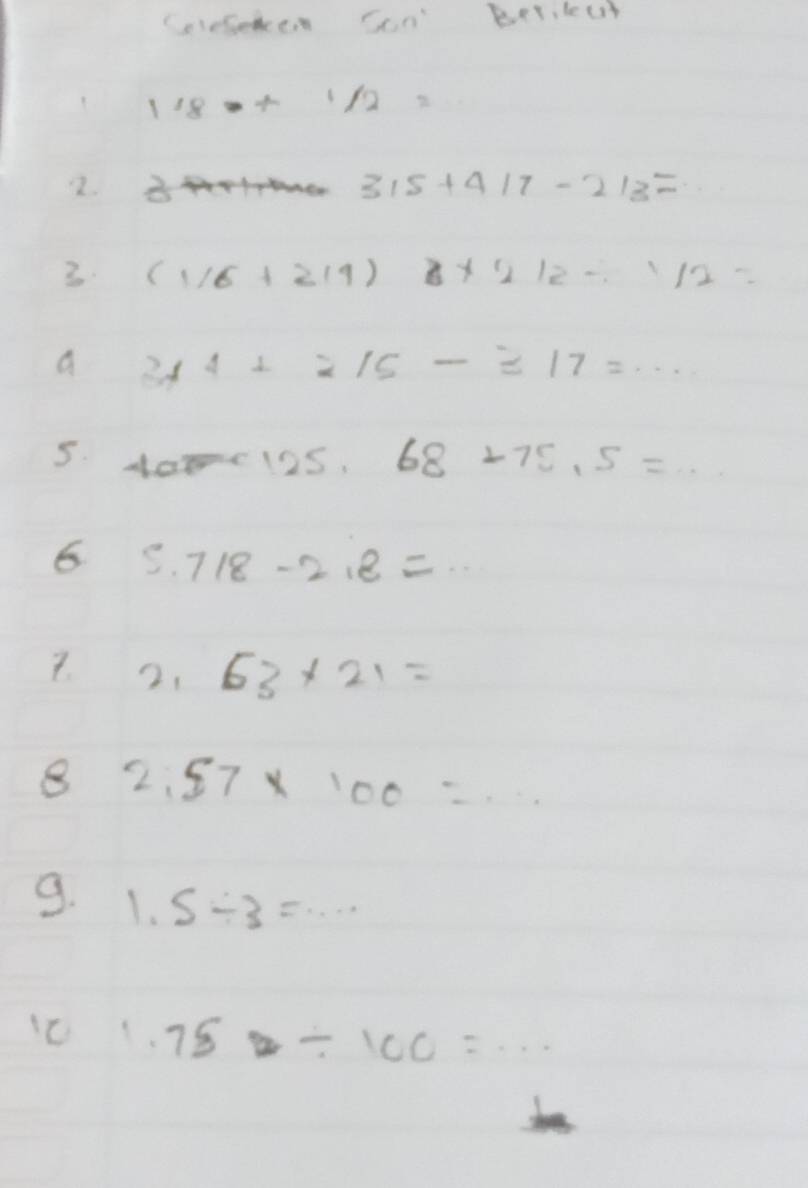 Selesaikan Soal Berikut
1 1/8 + 1/2 = ...
2. 3/5 + 4/7 - 2/3 = ...
3. (1/6 + 2/9) × 2/2 ÷ 1/2 =
4 3/4 + 2/5 - 3/7 = ....
5. 125. 68 + 75,5 = ...
6 5.718 - 2.8 = ...
7. 2, 63 × 21 =
8 2,57 × 100 = ....
9. 1.5 ÷ 3 = .....
10 1.75 ÷ 100 = ...